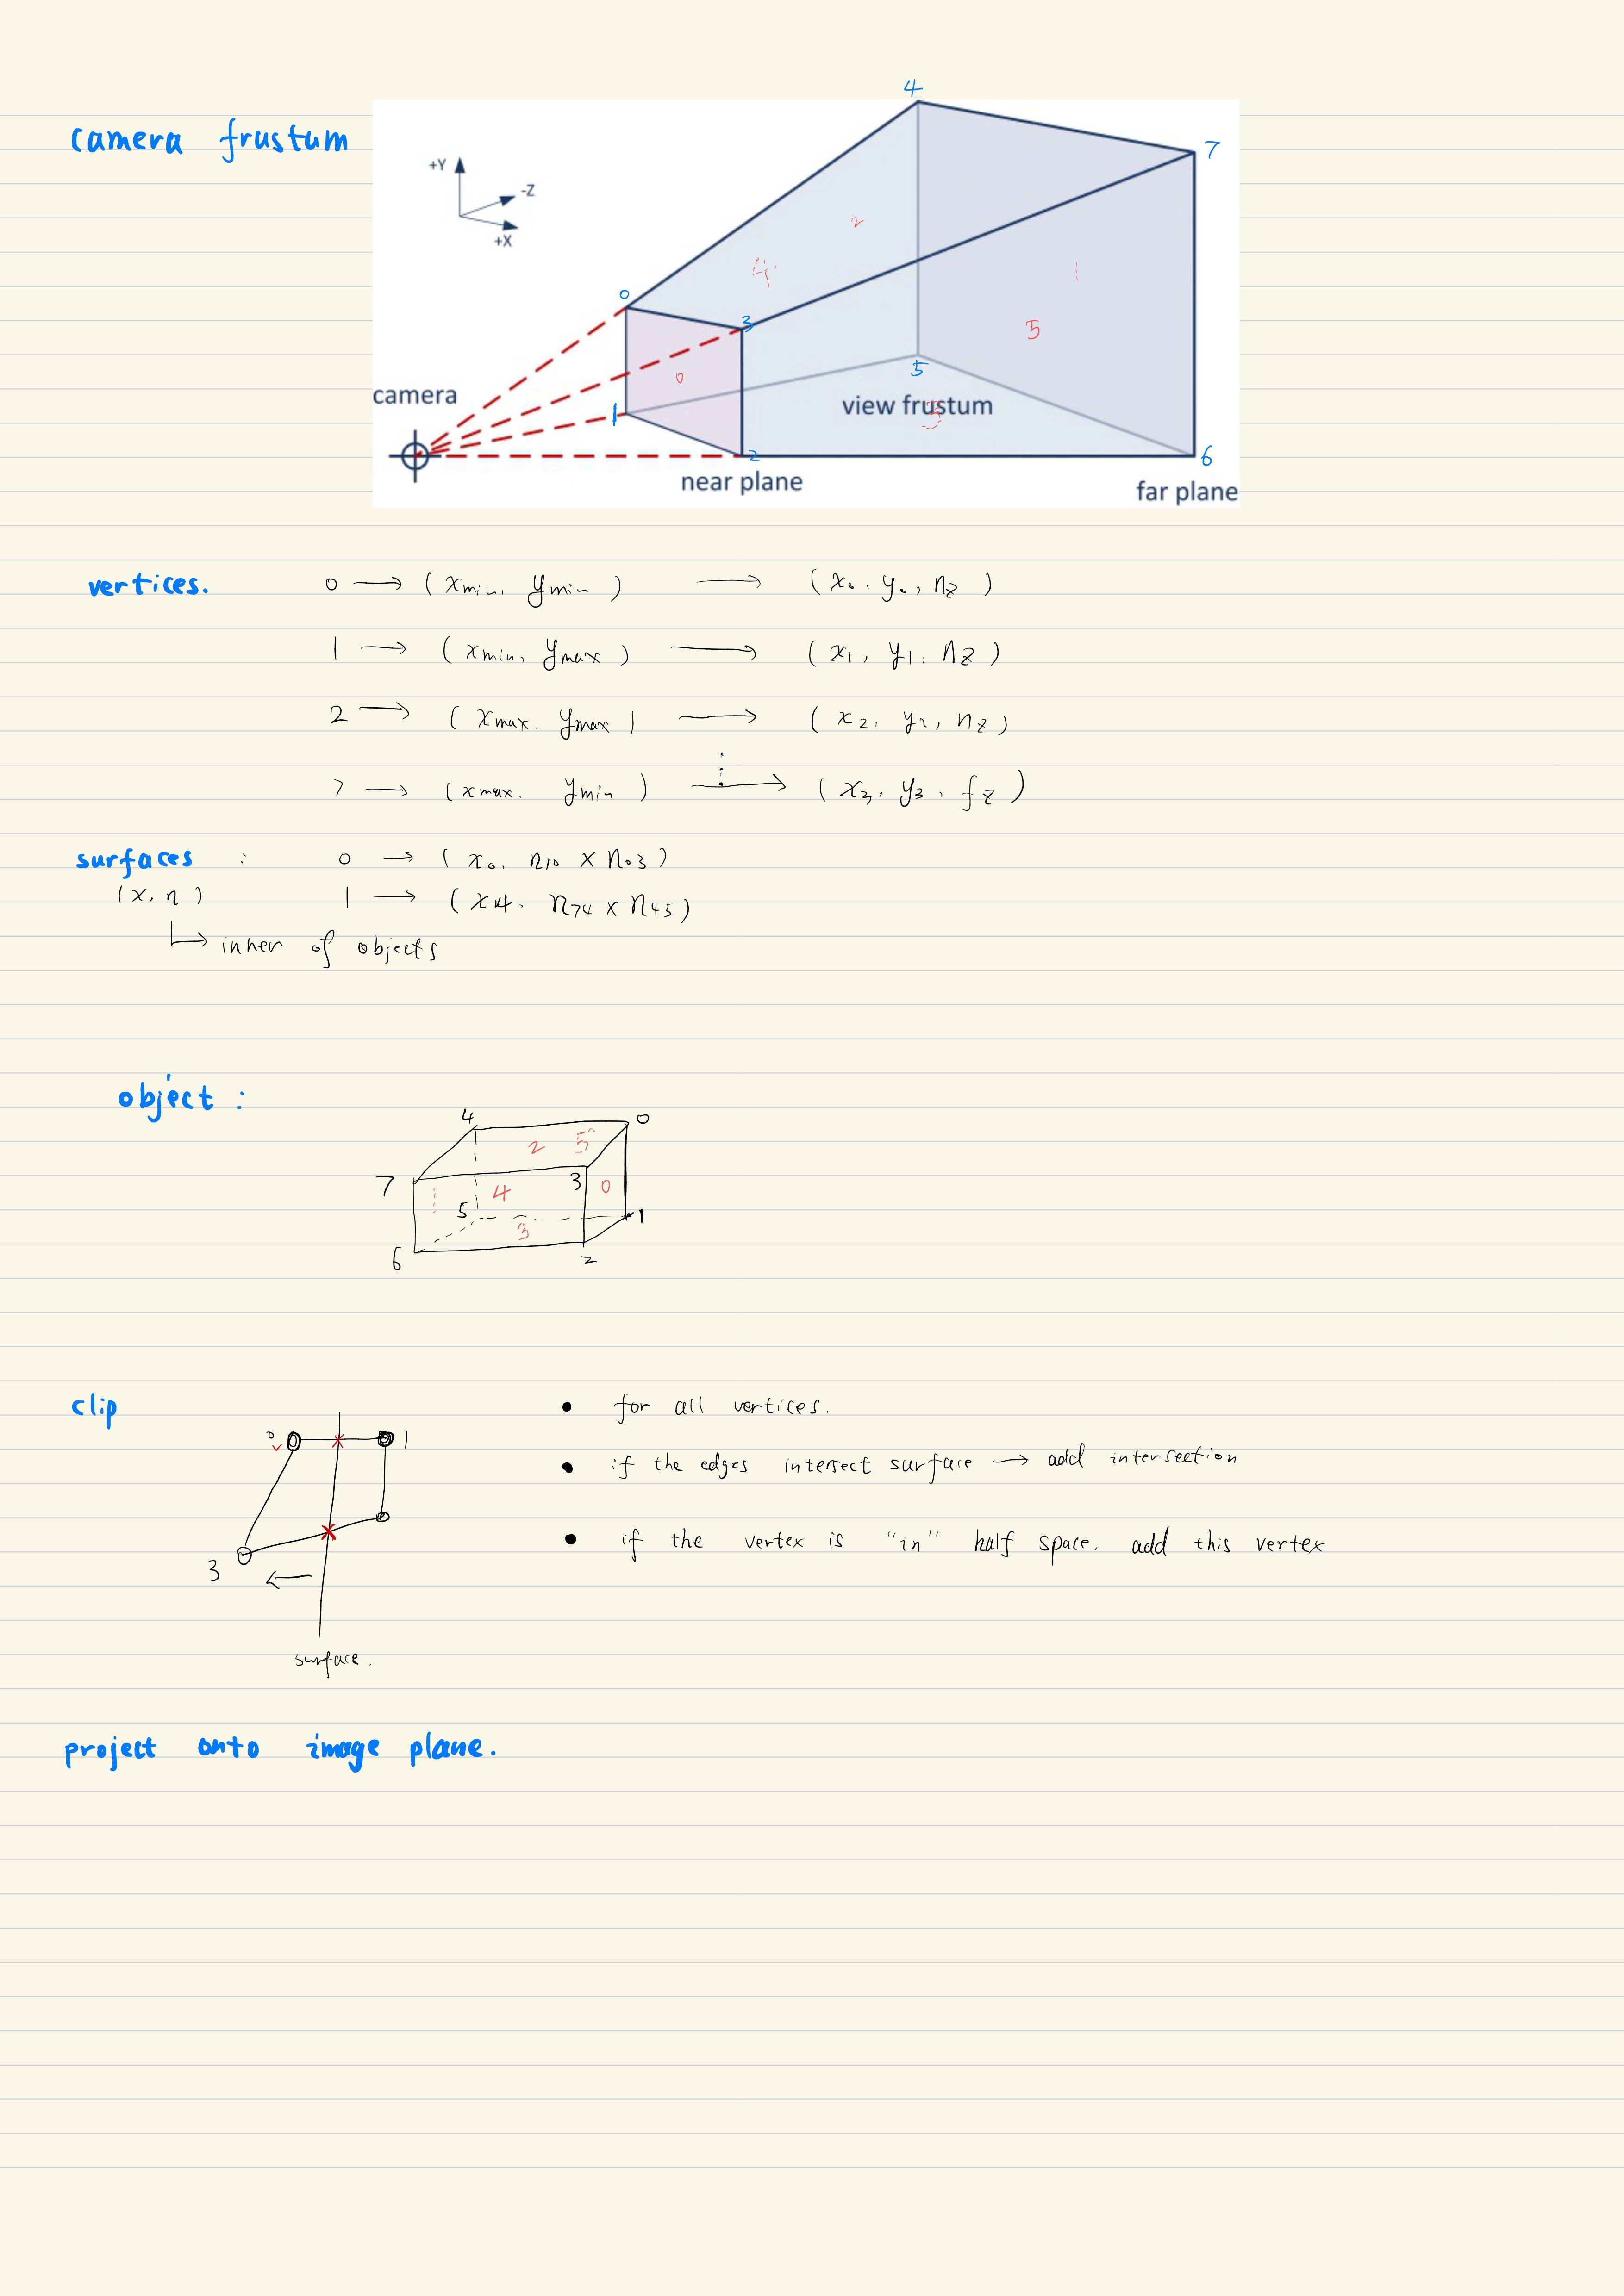 camera frustum
4
7
+Y
-Z
+X
2
4
1
0
3
5
0
5
camera
1
view frustum
3
2
6
near plane
far plane
vertices. 0 → (xmin, ymin) → (x0, y0, nz)
1 → (xmin, ymax) → (x1, y1, nz)
2 → (xmax, ymax) → (x2, y2, nz)
⋮
7 → (xmax, ymin) → (x3, y3, fz)
surfaces : 0 → (x0, n10 × n03)
(x, n) 1 → (x4, n74 × n45)
↳ inner of objects
object :
4 0
2 5
7 3
1 4 0
5 1
3
6 2
clip
0 1
3
surface.
• for all vertices.
• if the edges intersect surface → add intersection
• if the vertex is "in" half space. add this vertex
project onto image plane.